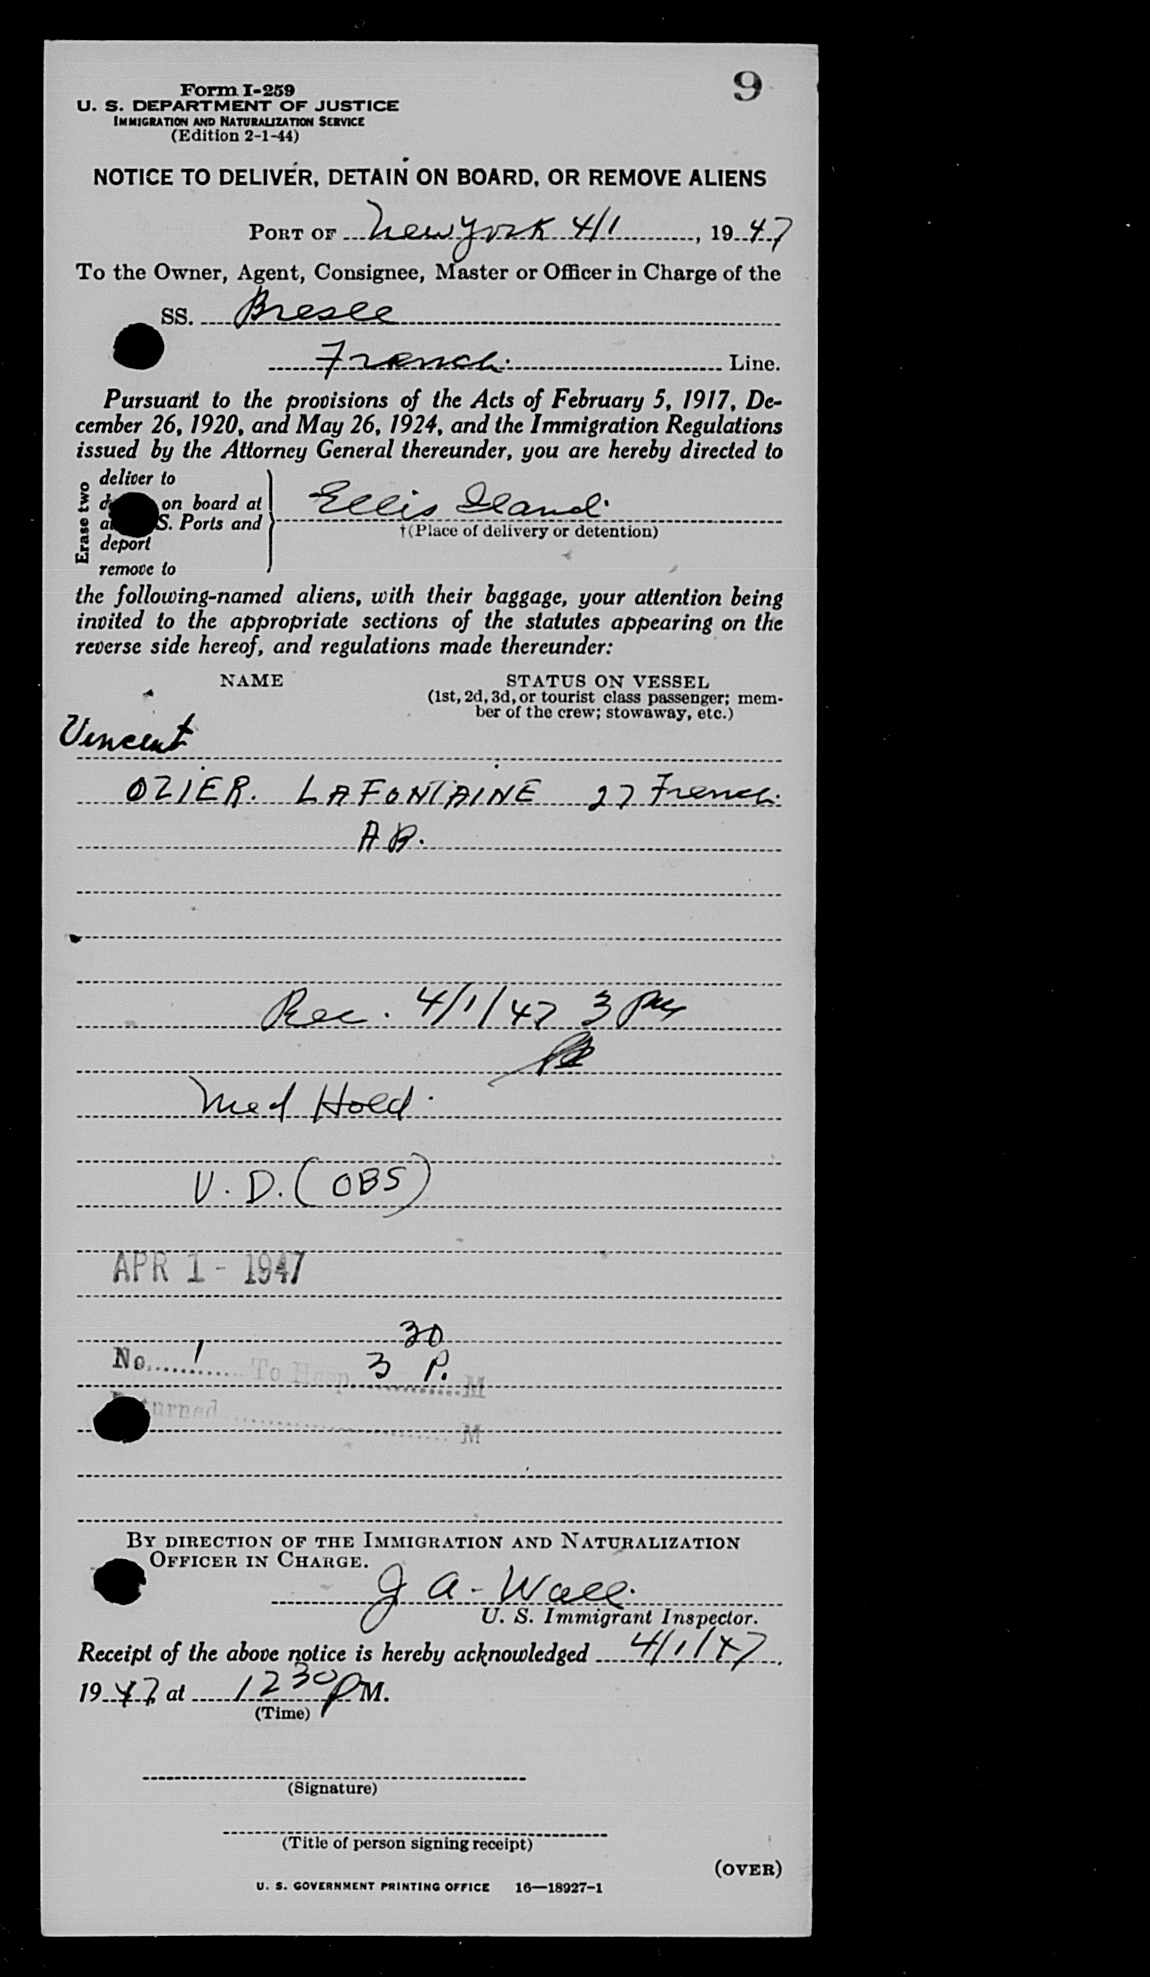 9
Form I-259
U. S. DEPARTMENT OF JUSTICE
IMMIGRATION AND NATURALIZATION SERVICE
(Edition 2-1-44)
NOTICE TO DELIVER, DETAIN ON BOARD, OR REMOVE ALIENS
PORT OF New York 4/1, 1947
To the Owner, Agent, Consignee, Master or Officer in Charge of the
SS. Bresle
French Line.
Pursuant to the provisions of the Acts of February 5, 1917, De-
cember 26, 1920, and May 26, 1924, and the Immigration Regulations
issued by the Attorney General thereunder, you are hereby directed to
Erase two
deliver to
on board at
S. Ports and
deport
remove to
Ellis Island
†(Place of delivery or detention)
the following-named aliens, with their baggage, your attention being
invited to the appropriate sections of the statutes appearing on the
reverse side hereof, and regulations made thereunder:
NAME STATUS ON VESSEL
(1st, 2d, 3d, or tourist class passenger; mem-
ber of the crew; stowaway, etc.)
Vincent
OZIER. LAFONTAINE 27 French
A B.
Rec. 4/1/47 3 pm
Med Hold
V. D. (OBS)
APR 1 - 1947
30
No. 1 To Hosp 3 P. M
Returned M
BY DIRECTION OF THE IMMIGRATION AND NATURALIZATION
OFFICER IN CHARGE.
J A - Wall
U. S. Immigrant Inspector.
Receipt of the above notice is hereby acknowledged 4/1/47,
1947 at 12 30 P M.
(Time)
(Signature)
(Title of person signing receipt)
(OVER)
U. S. GOVERNMENT PRINTING OFFICE 16—18927-1